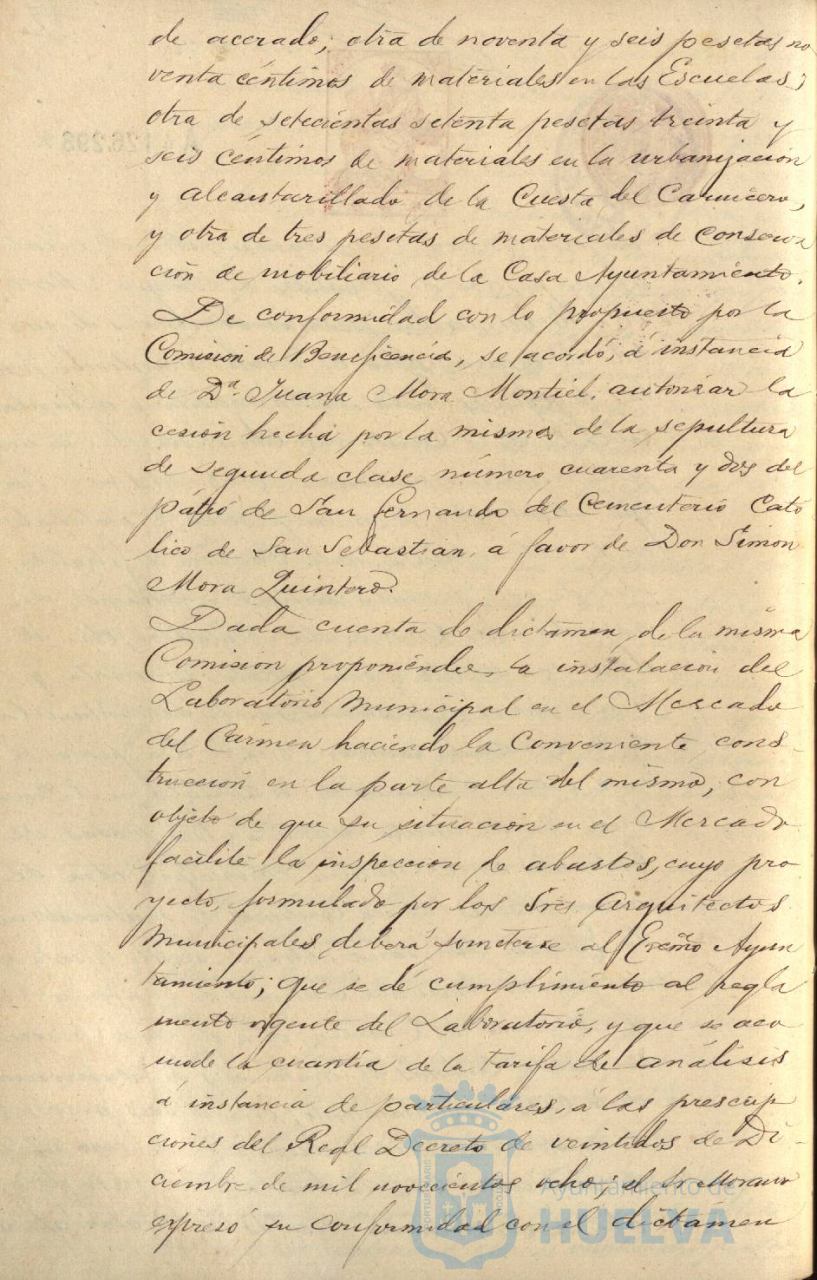 de acerado; otra de noventa y seis pesetas no
venta céntimos de materiales en las Escuelas;
otra de setecientas setenta pesetas treinta y
seis céntimos de materiales en la urbanización
y alcantarillado de la Cuesta del Carnicero,
y otra de tres pesetas de materiales de conserva
ción de mobiliario de la Casa Ayuntamiento.
De conformidad con lo propuesto por la
Comisión de Beneficencia, se acordó, á instancia
de Dª. Juana Mora Montiel, autorizar la
cesión hecha por la misma de la sepultura
de segunda clase número cuarenta y dos del
patio de San Fernando del Cementerio Cató
lico de San Sebastian, á favor de Don Simon
Mora Quintero.
Dada cuenta de dictámen de la misma
Comisión proponiendo la instalación del
Laboratorio Municipal en el Mercado
del Cármen haciendo la conveniente cons-
trucción en la parte alta del mismo, con
objeto de que su situación en el Mercado
facilite la inspeccion de abastos, cuyo pro
yecto, formulado por los Sres Arquitectos
Municipales deberá someterse al Excmo Ayun
tamiento; que se dé cumplimiento al regla
mento vigente del Laboratorio, y que se aco
mode la cuantía de la tarifa de análisis
á instancia de particulares, á las prescrip
ciones del Real Decreto de veintidos de Di-
ciembre de mil novecientos ocho; el Sr Morano
expresó su conformidad con el dictámen
Ayuntamiento de
HUELVA